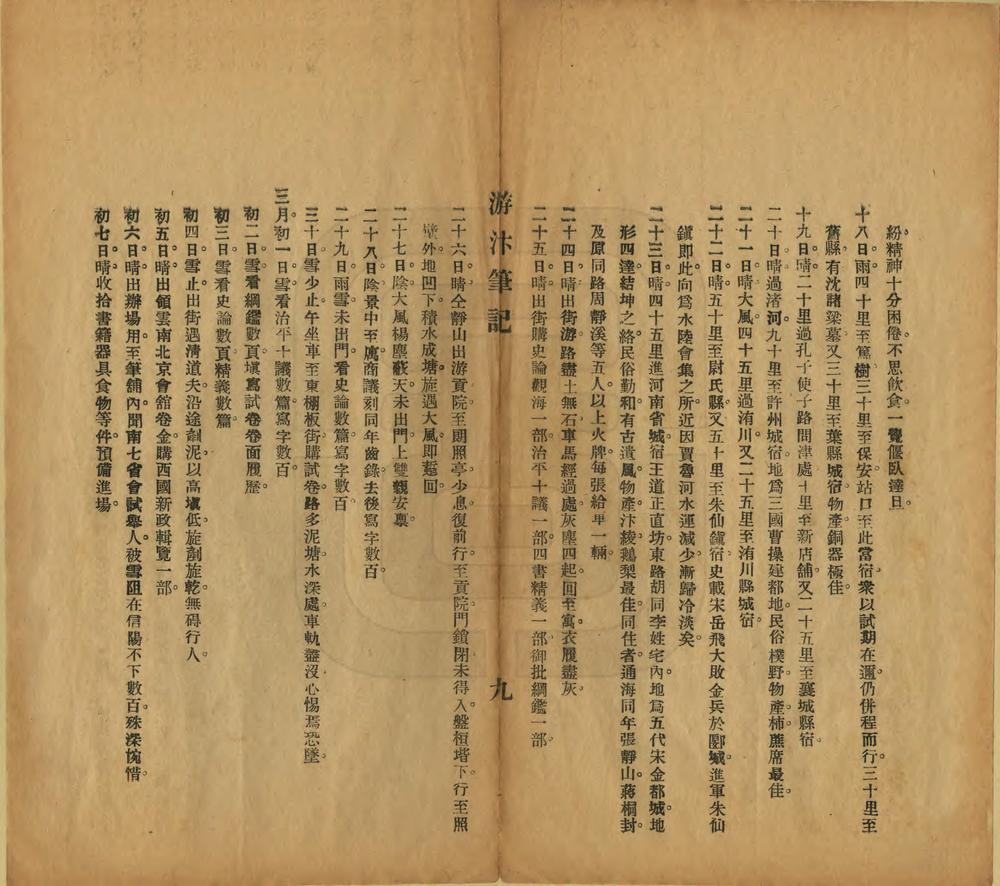 紛精神十分困倦不思飲食一覺偃臥達旦。
十八日雨四十里至舊縣三十里至保安站口至此當宿衆以試期在邇仍併程而行三十里至
舊縣有沈諸梁墓又三十里至葉縣城宿物產銅器極佳
十九日晴二十里過孔子使子路問津處十里至新店舖又二十五里至襄城縣宿。
二十日晴過渚河九十里至許州城宿地爲三國曹操建都地民俗樸野物產柿蔗席最佳。
二十一日晴大風四十五里過洧川又二十五里至洧川縣城宿。
二十二日晴五十里至尉氏縣又五十里至朱仙鎭宿史載宋岳飛大敗金兵於郾城進軍朱仙
鎭卽此向爲水陸會集之所近因賈魯河水運減少漸歸冷淡矣。
二十三日晴四十五里進河南省城宿王道正直坊東路胡同李姓宅內。地爲五代宋金都城地
形四達結坤之絡民俗勤和有古遺風。物產汴綾鵝梨最佳同住者通海同年張靜山蔣桐封。
及原同路周靜溪等五人。以上火牌每張給車一輛。
二十四日晴出街游路盡土無石車馬經過處灰塵四起回至寓衣履盡灰。
二十五日晴出街購史論觀海一部治平十議一部四書精義一部御批綱鑑一部。
游汴筆記
九
二十六日晴仝靜山出游貢院至明照亭少息復前行至貢院門鎖閉未得入盤桓堦下行至照
壁外地凹下積水成塘旋遇大風卽趲回
二十七日陰大風楊塵蔽天未出門上雙親安稟。
二十八日陰景中至寓商議刻同年齒錄去後寫字數百。
二十九日雨雪未出門看史論數篇寫字數百
三十日雪少止午坐車至東棚板街購試卷路多泥塘水深處車軌盡沒心惕焉恐墜。
三月初一日雪看治平十議數篇寫字數百
初二日雪看綱鑑數頁塡寫試卷卷面履歷。
初三日雪看史論數頁精義數篇
初四日雪止出街遇淸道夫沿途剷泥以高塡低旋剷旋乾無碍行人。
初五日晴出領雲南北京會館卷金購西國新政輯覽一部。
初六日晴出辦場用至筆舖內聞南七省會試舉人被雪阻在信陽不下數百。殊深惋惜。
初七日晴收拾書籍器具食物等件預備進場。